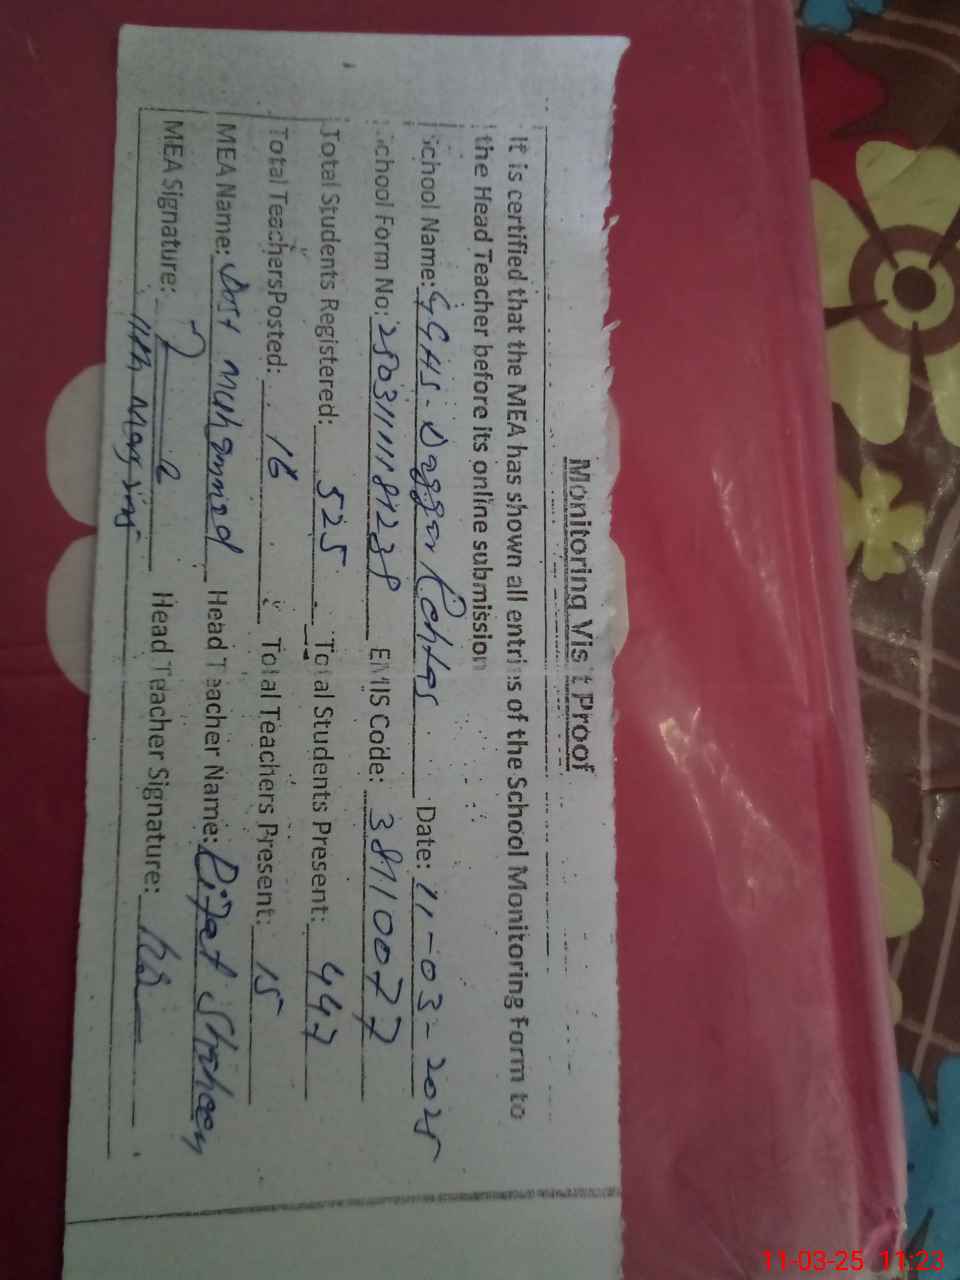 Monitoring Visit Proof
It is certified that the MEA has shown all entries of the School Monitoring Form to
the Head Teacher before its online submission
School Name: GGHS - Dagger Rohtas Date: 11-03-2025
School Form No: EMIS Code: 38110077
Total Students Registered: 525 Total Students Present: 447
Total TeachersPosted: 16 Total Teachers Present: 15
MEA Name: Dost Muhammad Head Teacher Name: Rifat Shaheen
MEA Signature: Head Teacher Signature:
11th
11-03-25 11:23